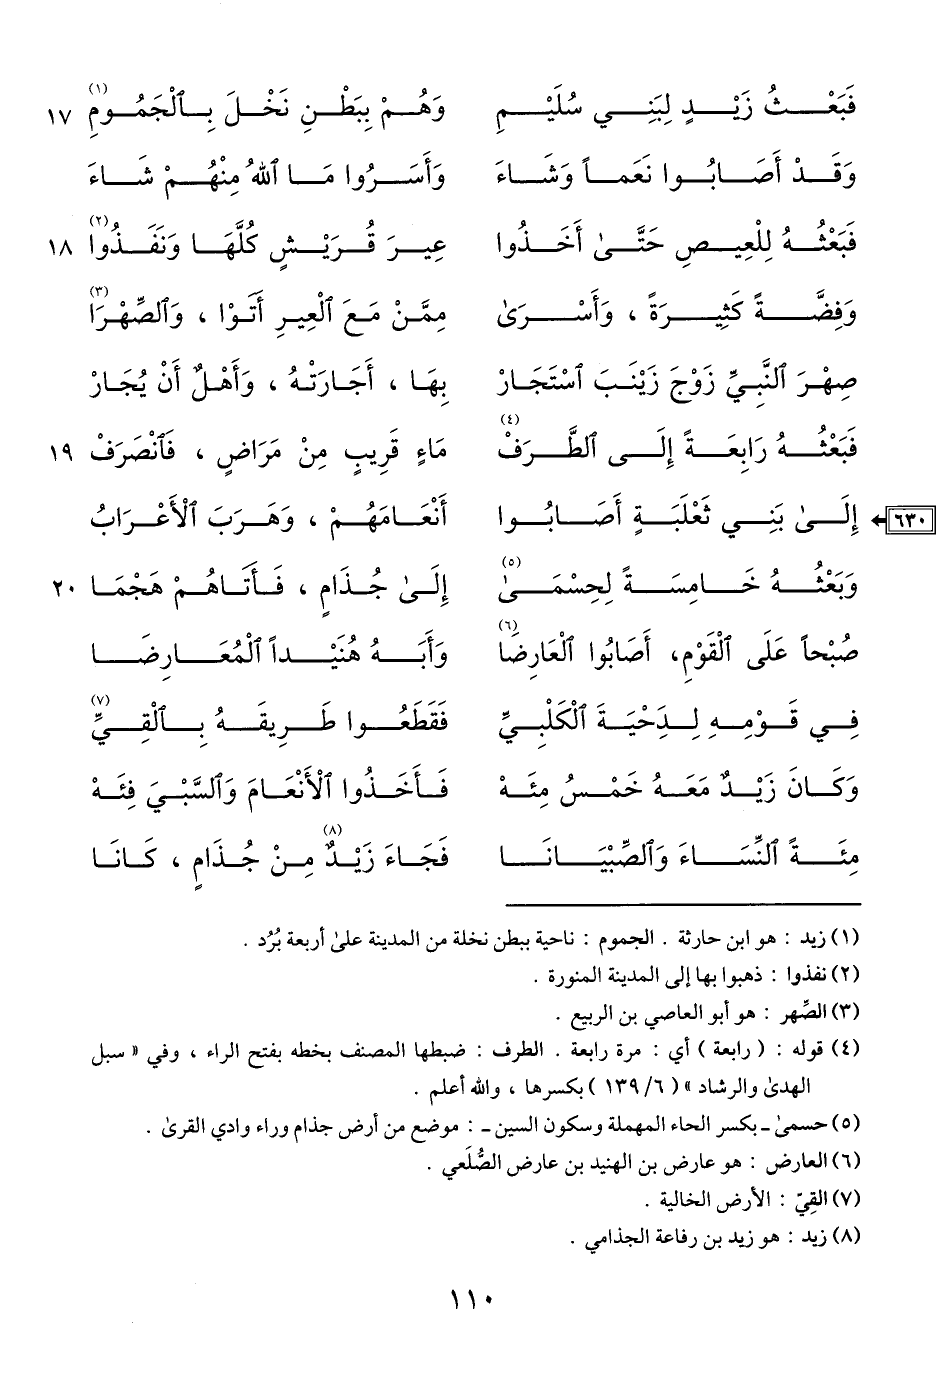 فَبَعْثُ زَيْدٍ لِبَنِي سُلَيْمِ وَهُمْ بِبَطْنِ نَخْلَ بِٱلْجَمُومِ (١) ١٧
وَقَدْ أَصَابُوا نَعَماً وَشَاءَ وَأَسَرُوا مَا ٱللهُ مِنْهُمْ شَاءَ
فَبَعْثُهُ لِلْعِيصِ حَتَّىٰ أَخَذُوا عِيرَ قُرَيْشٍ كُلَّهَا وَنَفَذُوا (٢) ١٨
وَفِضَّةً كَثِيرَةً ، وَأَسْرَىٰ مِمَّنْ مَعَ ٱلْعِيرِ أَتَوْا ، وَٱلصِّهْرَا (٣)
صِهْرَ ٱلنَّبِيِّ زَوْجَ زَيْنَبَ ٱسْتَجَارْ بِهَا ، أَجَارَتْهُ ، وَأَهْلٌ أَنْ يُجَارْ
فَبَعْثُهُ رَابِعَةً إِلَى ٱلطَّرَفْ (٤) مَاءٍ قَرِيبٍ مِنْ مَرَاضٍ ، فَٱنْصَرَفْ ١٩
٦٣٠ إِلَىٰ بَنِي ثَعْلَبَةٍ أَصَابُوا أَنْعَامَهُمْ ، وَهَرَبَ ٱلْأَعْرَابُ
وَبَعْثُهُ خَامِسَةً لِحِسْمَىٰ (٥) إِلَىٰ جُذَامٍ ، فَأَتَاهُمْ هَجْمَا ٢٠
صُبْحاً عَلَى ٱلْقَوْمِ، أَصَابُوا ٱلْعَارِضَا (٦) وَأَبَهُ هُنَيْداً ٱلْمُعَارِضَا
فِي قَوْمِهِ لِدَحْيَةَ ٱلْكَلْبِيِّ فَقَطَعُوا طَرِيقَهُ بِٱلْقِيِّ (٧)
وَكَانَ زَيْدٌ مَعَهُ خَمْسُ مِئَهْ فَأَخَذُوا ٱلْأَنْعَامَ وَٱلسَّبْيَ فِئَهْ
مِئَةً ٱلنِّسَاءَ وَٱلصِّبْيَانَا فَجَاءَ زَيْدٌ (٨) مِنْ جُذَامٍ ، كَانَا
(١) زيد : هو ابن حارثة . الجموم : ناحية ببطن نخلة من المدينة علىٰ أربعة بُرُد .
(٢) نفذوا : ذهبوا بها إلى المدينة المنورة .
(٣) الصِّهر : هو أبو العاصي بن الربيع .
(٤) قوله : ( رابعة ) أي : مرة رابعة . الطرف : ضبطها المصنف بخطه بفتح الراء ، وفي « سبل
الهدىٰ والرشاد » ( ٦/ ١٣٩ ) بكسرها ، والله أعلم .
(٥) حسمىٰ ـ بكسر الحاء المهملة وسكون السين ـ : موضع من أرض جذام وراء وادي القرىٰ .
(٦) العارض : هو عارض بن الهنيد بن عارض الضُّلَعي .
(٧) القِيّ : الأرض الخالية .
(٨) زيد : هو زيد بن رفاعة الجذامي .
١١٠